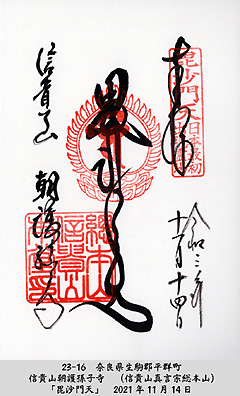 奉拝
毘沙門天王日本最初
令和三年
十一月十四日
毘沙門天
信貴山
朝護孫子寺
総本山
信貴山
23-16 奈良県生駒郡平群町
信貴山朝護孫子寺 (信貴山真言宗総本山)
「毘沙門天」 2021年11月14日